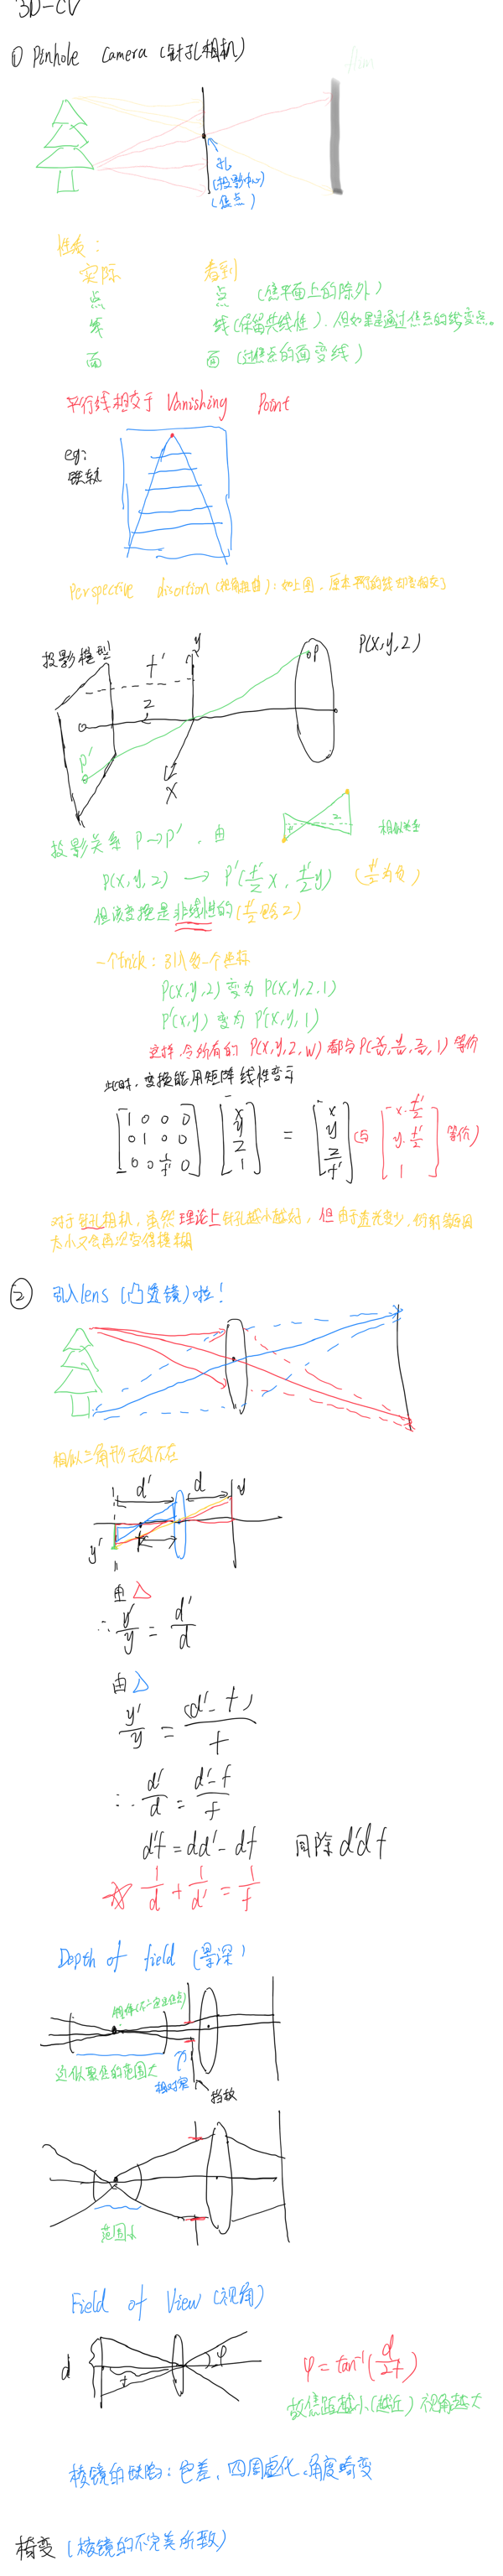 3D-CV
① Pinhole Camera (针孔相机)
film
孔
(投影中心)
(焦点)
性质：
实际 看到
点 点 (焦平面上的除外)
线 线(保留共线性)，但如果是通过焦点的线变点。
面 面 (过焦点的面变线)
平行线相交于 Vanishing Point
eg:
铁轨
Perspective disortion (视角扭曲)：如上图，原本平行的线却会相交了
投影模型 f' y P P(x,y,z)
z
P' x
z 相似关系
投影关系 P→P'，由
P(x,y,z) → P'(f'/z x, f'/z y) (f'/z 为负)
但该变换是非线性的 (f'/z 包含z)
一个trick：引入多一个坐标
P(x,y,z) 变为 P(x,y,z,1)
P'(x,y) 变为 P'(x,y,1)
这样，令所有的 P(x,y,z,w) 都与P(x/w, y/w, z/w, 1) 等价
此时，变换能用矩阵线性表示
[1 0 0 0] [x] [x] [x·f'/z]
[0 1 0 0] [y] = [y] (与 [y·f'/z] 等价)
[0 0 1/f' 0] [z] [z/f'] [1]
[1]
对于针孔相机，虽然理论上针孔越小越好，但由于进光变少，衍射等原因
太小又会再次变得模糊
② 引入lens (凸透镜) 啦！
相似三角形无处不在
d' d y
y'
由△
∴ y'/y = d'/d
由△
y'/y = (d'-f)/f
∴ d'/d = (d'-f)/f
d'f = dd' - df 同除 d'df
☆ 1/d + 1/d' = 1/f
Depth of field (景深)
物体(不一定在焦点)
近似聚焦的范围大
挡板
范围小
Field of View (视角)
d f φ φ = tan⁻¹(d/2f)
故焦距越小(越近) 视角越大
棱镜的缺陷：色差，四周虚化，角度畸变
畸变 (棱镜的不完美所致)